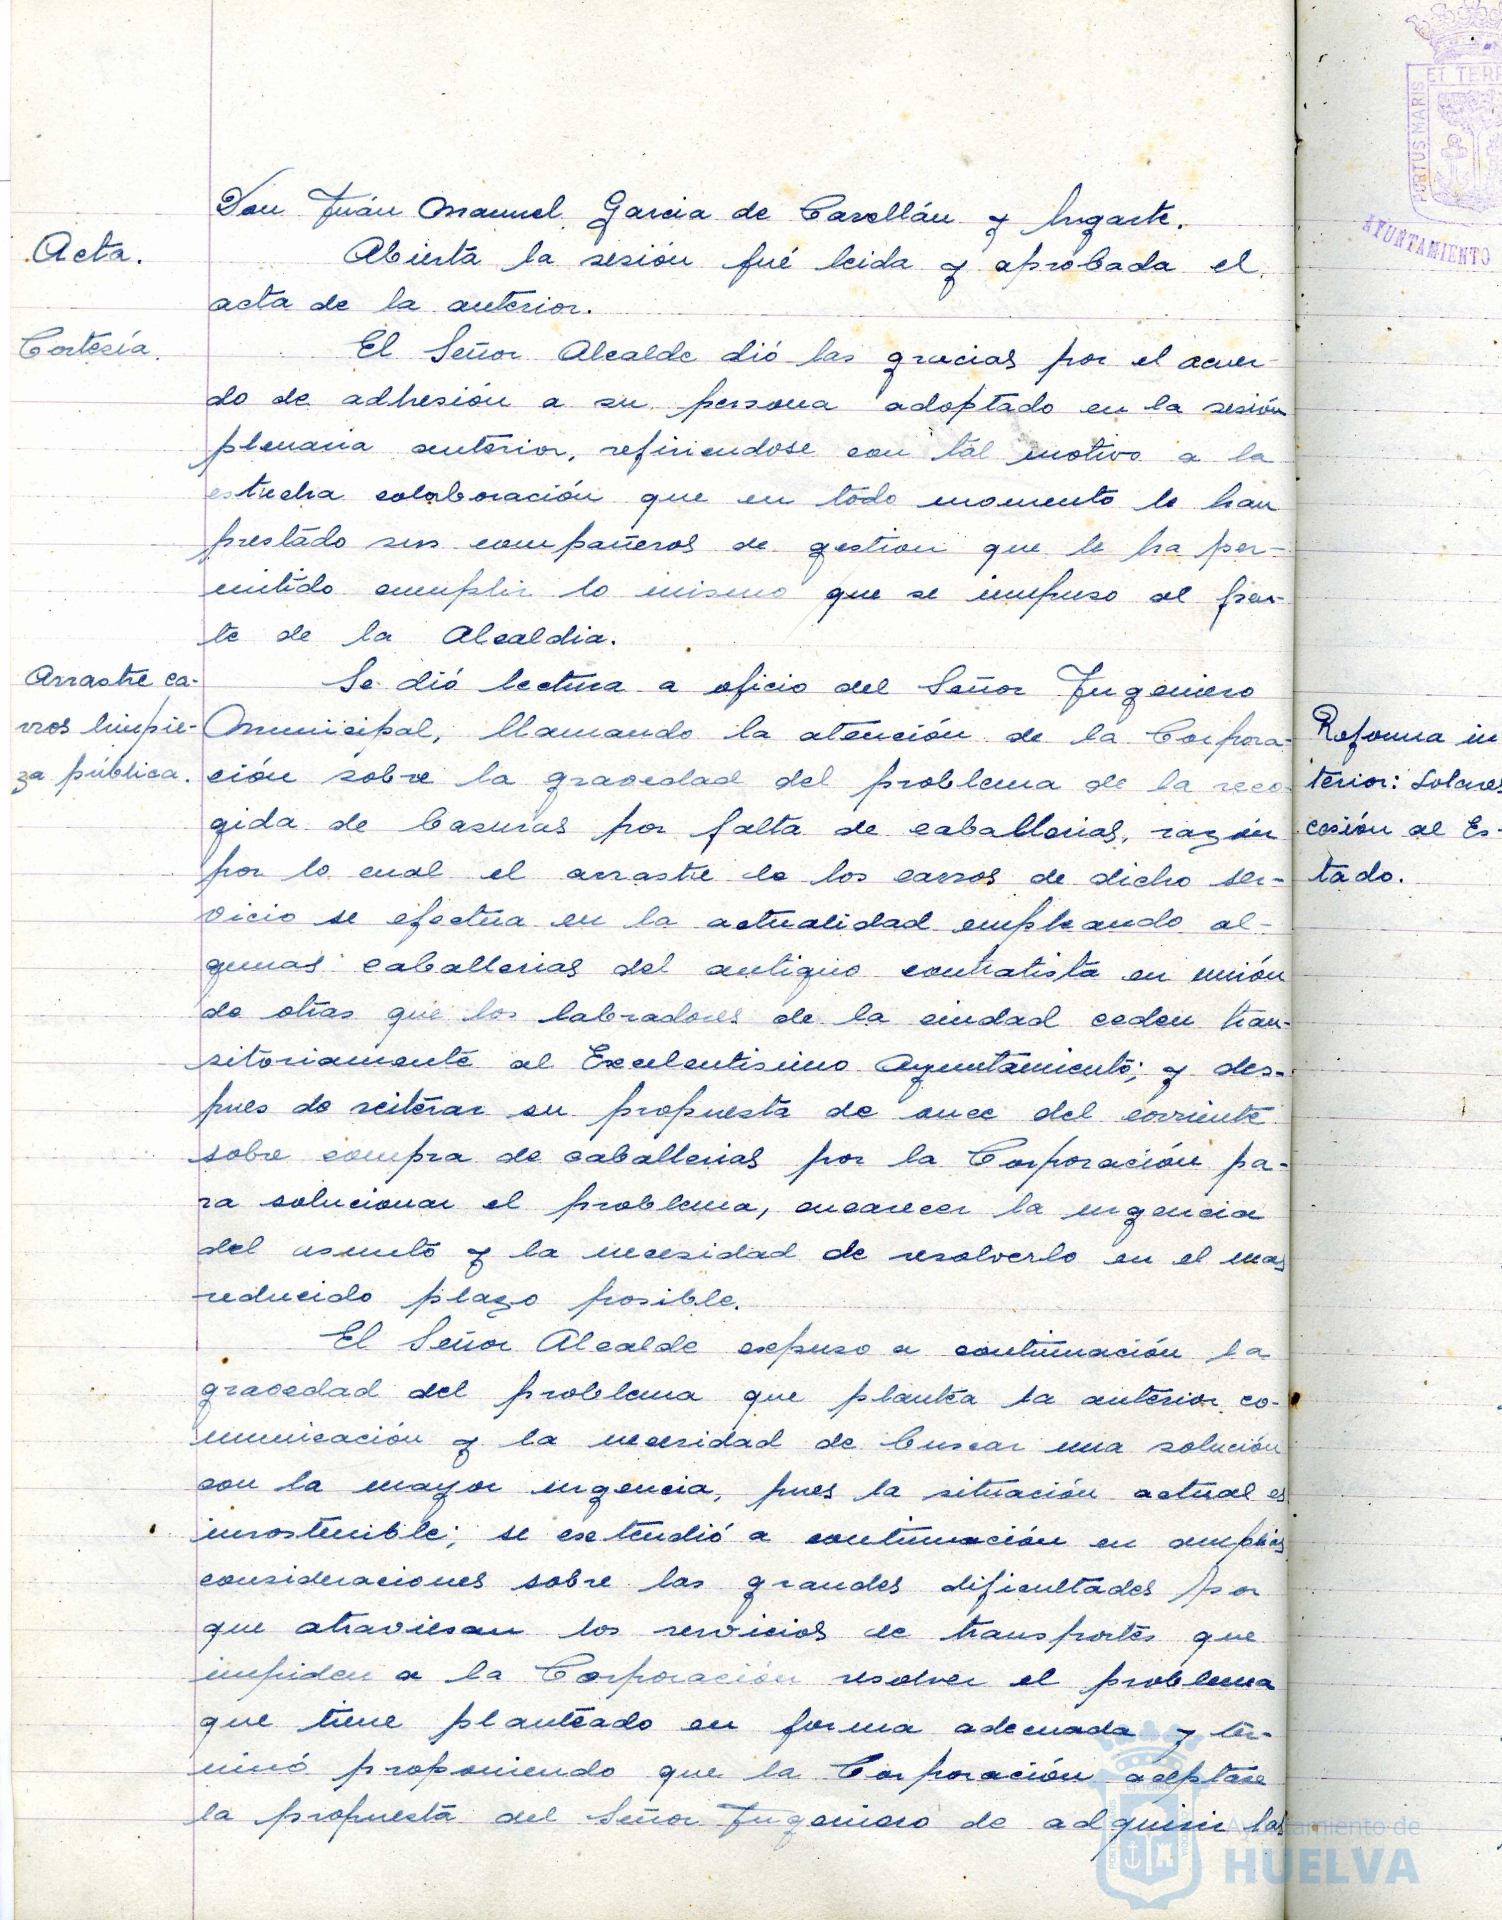 Don Juán Manuel Garcia de Cavellán y Ingarte.
Acta.
Abierta la sesión fué leida y aprobada el
acta de la anterior.
Cortesía.
El Señor Alcalde dió las gracias por el acuer-
do de adhesión a su persona adoptado en la sesión
plenaria anterior, refiriendose con tál motivo a la
estrecha colaboración que en todo momento le han
prestado sus compañeros de gestion que le ha per-
mitido cumplir lo mismo que se impuso al fren-
te de la Alcaldia.
Arrastre ca-
rros limpie-
za pública.
Se dió lectura a oficio del Señor Ingeniero
Municipal, llamando la atención de la Corpora-
ción sobre la gravedad del problema de la reco-
gida de basuras por falta de caballerias, razón
por lo cual el arrastre de los carros de dicho ser-
vicio se efectua en la actualidad empleando al-
gunas caballerias del antiguo contratista en unión
de otras que los labradores de la ciudad ceden tran-
sitoriamente al Excelentisimo Ayuntamiento; y des-
pues de reiterar su propuesta de once del corriente
sobre compra de caballerias por la Corporación pa-
ra solucionar el problema, encarecer la urgencia
del asunto y la necesidad de resolverlo en el mas
reducido plazo posible.
El Señor Alcalde expuso a continuación la
gravedad del problema que plantea la anterior co-
municación y la necesidad de buscar una solución
con la mayor urgencia, pues la situación actual es
insostenible; se extendió a continuación en amplias
consideraciones sobre las grandes dificultades por
que atraviesan los servicios de transportes que
impiden a la Corporación resolver el problema
que tiene planteado en forma adecuada y ter-
minó proponiendo que la Corporación aceptase
la propuesta del Señor Ingeniero de adquirir las
Reforma in
terior: Solares
cesión al Es-
tado.
PORTUS MARIS
ET TERR
AYUNTAMIENTO
Ayuntamiento de
HUELVA